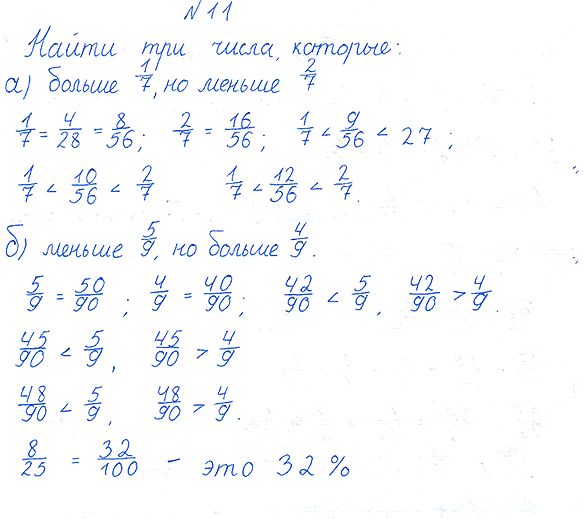 № 11
Найти три числа, которые:
а) больше 1/7, но меньше 2/7
1/7 = 4/28 = 8/56; 2/7 = 16/56; 1/7 < 9/56 < 27;
1/7 < 10/56 < 2/7. 1/7 < 12/56 < 2/7.
б) меньше 5/9, но больше 4/9.
5/9 = 50/90; 4/9 = 40/90; 42/90 < 5/9, 42/90 > 4/9.
45/90 < 5/9, 45/90 > 4/9
48/90 < 5/9, 48/90 > 4/9.
8/25 = 32/100 - это 32 %